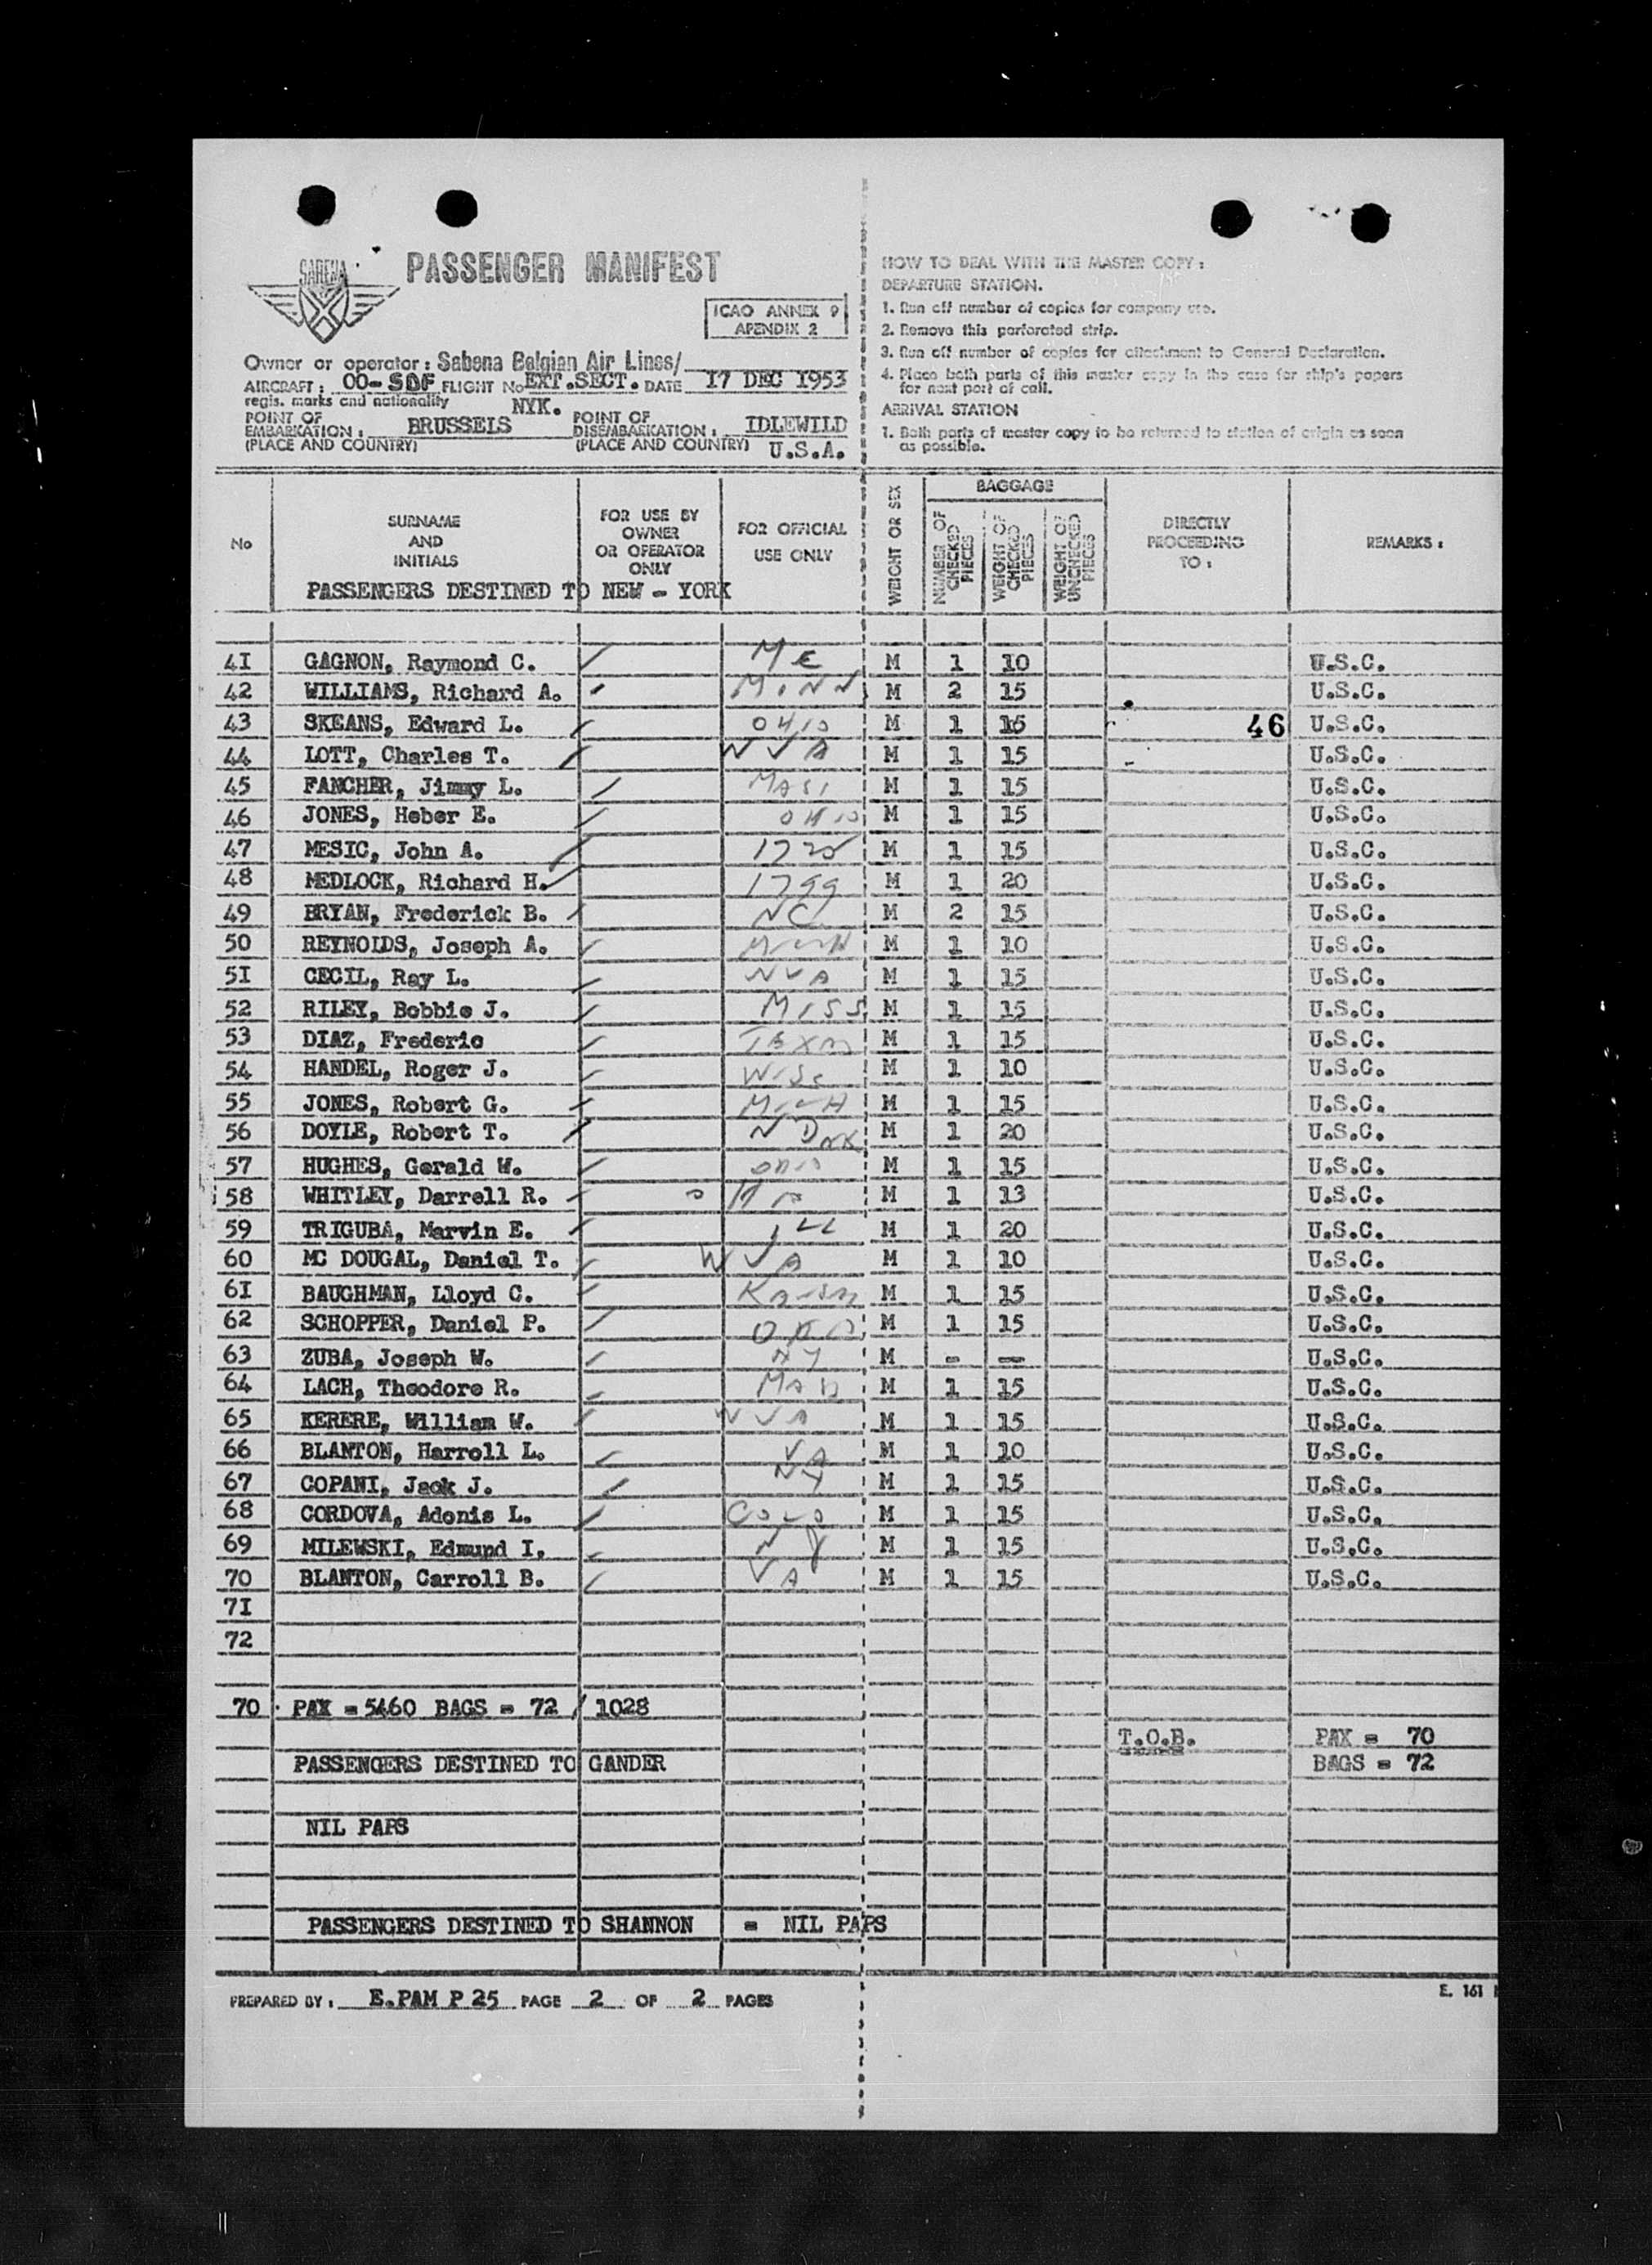 SABENA
PASSENGER MANIFEST
ICAO ANNEX 9
APENDIX 2
Owner or operator : Sabena Belgian Air Lines/
AIRCRAFT : OO-SDF FLIGHT No EXT.SECT. DATE 17 DEC 1953
regis. marks and nationality NYK.
POINT OF EMBARKATION : BRUSSELS POINT OF DISEMBARKATION : IDLEWILD
(PLACE AND COUNTRY) (PLACE AND COUNTRY) U.S.A.
HOW TO DEAL WITH THE MASTER COPY :
DEPARTURE STATION.
1. Run off number of copies for company use.
2. Remove this perforated strip.
3. Run off number of copies for attachment to General Declaration.
4. Place both parts of this master copy in the case for ship's papers
for next port of call.
ARRIVAL STATION
1. Both parts of master copy to be returned to station of origin as soon
as possible.
No
SURNAME
AND
INITIALS
FOR USE BY
OWNER
OR OPERATOR
ONLY
FOR OFFICIAL
USE ONLY
WEIGHT OR SEX
BAGGAGE
NUMBER OF CHECKED PIECES
WEIGHT OF CHECKED PIECES
WEIGHT OF UNCHECKED PIECES
DIRECTLY
PROCEEDING
TO :
REMARKS :
PASSENGERS DESTINED TO NEW - YORK
4I GAGNON, Raymond C. ME M 1 10 U.S.C.
42 WILLIAMS, Richard A. MINN M 2 15 U.S.C.
43 SKEANS, Edward L. OHIO M 1 15 46 U.S.C.
44 LOTT, Charles T. W VA M 1 15 U.S.C.
45 FANCHER, Jimmy L. MASS M 1 15 U.S.C.
46 JONES, Heber E. OHIO M 1 15 U.S.C.
47 MESIC, John A. M 1 15 U.S.C.
48 MEDLOCK, Richard H. 1799 M 1 20 U.S.C.
49 BRYAN, Frederick B. NC M 2 15 U.S.C.
50 REYNOLDS, Joseph A. MICH M 1 10 U.S.C.
5I CECIL, Ray L. W VA M 1 15 U.S.C.
52 RILEY, Bobbie J. MISS M 1 15 U.S.C.
53 DIAZ, Frederic M 1 15 U.S.C.
54 HANDEL, Roger J. WISC M 1 10 U.S.C.
55 JONES, Robert G. MICH M 1 15 U.S.C.
56 DOYLE, Robert T. N DAK M 1 20 U.S.C.
57 HUGHES, Gerald W. OHIO M 1 15 U.S.C.
58 WHITLEY, Darrell R. OHIO M 1 13 U.S.C.
59 TRIGUBA, Marvin E. ILL M 1 20 U.S.C.
60 MC DOUGAL, Daniel T. W VA M 1 10 U.S.C.
6I BAUGHMAN, Lloyd C. M 1 15 U.S.C.
62 SCHOPPER, Daniel P. M 1 15 U.S.C.
63 ZUBA, Joseph W. NY M - - U.S.C.
64 LACH, Theodore R. M 1 15 U.S.C.
65 KERERE, William W. W VA M 1 15 U.S.C.
66 BLANTON, Harroll L. VA M 1 10 U.S.C.
67 COPANI, Jack J. NY M 1 15 U.S.C.
68 CORDOVA, Adonis L. COLO M 1 15 U.S.C.
69 MILEWSKI, Edmund I. NY M 1 15 U.S.C.
70 BLANTON, Carroll B. VA M 1 15 U.S.C.
7I
72
70 PAX = 5460 BAGS = 72 / 1028
T.O.B. PAX = 70
PASSENGERS DESTINED TO GANDER BAGS = 72
NIL PAPS
PASSENGERS DESTINED TO SHANNON = NIL PAPS
PREPARED BY : E.PAM P 25 PAGE 2 OF 2 PAGES
E. 161